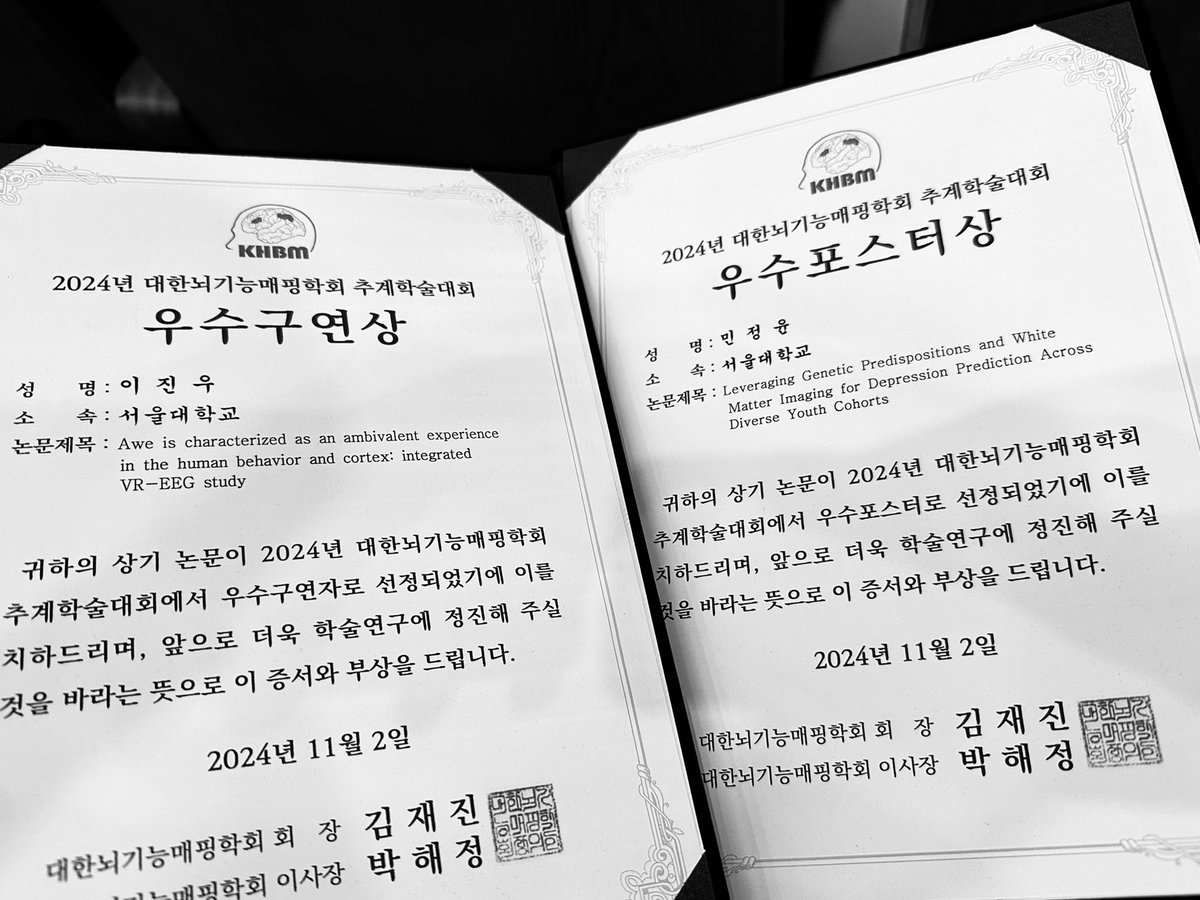 KHBM
2024년 대한뇌기능매핑학회 추계학술대회
우수구연상
성 명 : 이 진 우
소 속 : 서울대학교
논문제목 : Awe is characterized as an ambivalent experience
in the human behavior and cortex: integrated
VR-EEG study
귀하의 상기 논문이 2024년 대한뇌기능매핑학회
추계학술대회에서 우수구연자로 선정되었기에 이를
치하드리며, 앞으로 더욱 학술연구에 정진해 주실
것을 바라는 뜻으로 이 증서와 부상을 드립니다.
2024년 11월 2일
대한뇌기능매핑학회 회 장 김 재 진
뇌기능매핑학회 이사장 박 해 정
KHBM
2024년 대한뇌기능매핑학회 추계학술대회
우수포스터상
성 명 : 민 정 윤
소 속 : 서울대학교
논문제목 : Leveraging Genetic Predispositions and White
Matter Imaging for Depression Prediction Across
Diverse Youth Cohorts
귀하의 상기 논문이 2024년 대한뇌기능매핑학회
추계학술대회에서 우수포스터로 선정되었기에 이를
치하드리며, 앞으로 더욱 학술연구에 정진해 주실
것을 바라는 뜻으로 이 증서와 부상을 드립니다.
2024년 11월 2일
대한뇌기능매핑학회 회 장 김 재 진
대한뇌기능매핑학회 이사장 박 해 정